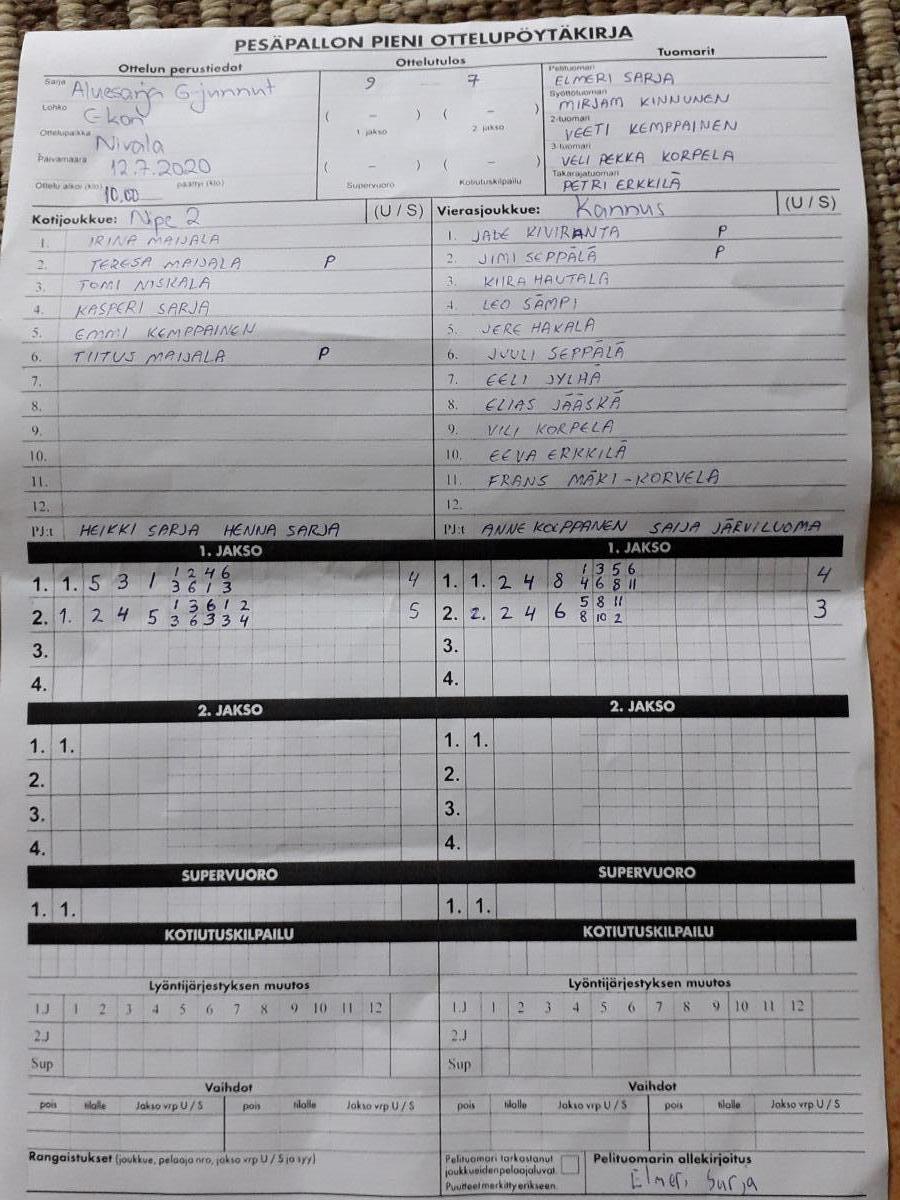 PESÄPALLON PIENI OTTELUPÖYTÄKIRJA
Ottelun perustiedot Ottelutulos Tuomarit
Sarja Aluesarja G-junnut
Lohko
Ottelupaikka Nivala
Päivämäärä 12.7.2020
Ottelu alkoi (klo) 10.00 päättyi (klo)
9 – 7
( – ) ( – )
1 jakso 2 jakso
( – ) ( – )
Supervuoro Kotiutuskilpailu
Pelituomari ELMERI SARJA
Syöttötuomari MIRJAM KINNUNEN
2-tuomari VEETI KEMPPAINEN
3-tuomari VELI PEKKA KORPELA
Takarajatuomari PETRI ERKKILÄ
Kotijoukkue: Nipe 2 (U / S)
1. IRINA MAIJALA
2. TERESA MAIJALA P
3. TOMI NISKALA
4. KASPERI SARJA
5. EMMI KEMPPAINEN
6. TIITUS MAIJALA P
7.
8.
9.
10.
11.
12.
PJ:t HEIKKI SARJA HENNA SARJA
Vierasjoukkue: Kannus (U / S)
1. JADE KIVIRANTA P
2. JIMI SEPPÄLÄ P
3. KIIRA HAUTALA
4. LEO SÄMPI
5. JERE HAKALA
6. JUULI SEPPÄLÄ
7. EELI JYLHÄ
8. ELIAS JÄÄSKÄ
9. VILI KORPELA
10. EEVA ERKKILÄ
11. FRANS MÄKI-KORVELA
12.
PJ:t ANNE KOLPPANEN SAIJA JÄRVILUOMA
1. JAKSO
1. 1. 5 3 1 1 2 4 6 4
3 6 1 3
2. 1. 2 4 5 1 3 6 1 2 5
3 6 3 3 4
3.
4.
1. JAKSO
1. 1. 2 4 8 1 3 5 6 4
4 6 8 11
2. 2. 2 4 6 5 8 11 3
8 10 2
3.
4.
2. JAKSO
1. 1.
2.
3.
4.
2. JAKSO
1. 1.
2.
3.
4.
SUPERVUORO
1. 1.
SUPERVUORO
1. 1.
KOTIUTUSKILPAILU
KOTIUTUSKILPAILU
Lyöntijärjestyksen muutos
1.J 1 2 3 4 5 6 7 8 9 10 11 12
2.J
Sup
Lyöntijärjestyksen muutos
1.J 1 2 3 4 5 6 7 8 9 10 11 12
2.J
Sup
Vaihdot
pois tilalle Jakso vrp U / S pois tilalle Jakso vrp U / S
Vaihdot
pois tilalle Jakso vrp U / S pois tilalle Jakso vrp U / S
Rangaistukset (joukkue, pelaaja nro, jakso vrp U / S ja syy)
Pelituomari tarkastanut
joukkueiden pelaajaluvat.
Puutteet merkitty erikseen.
Pelituomarin allekirjoitus
Elmeri Sarja